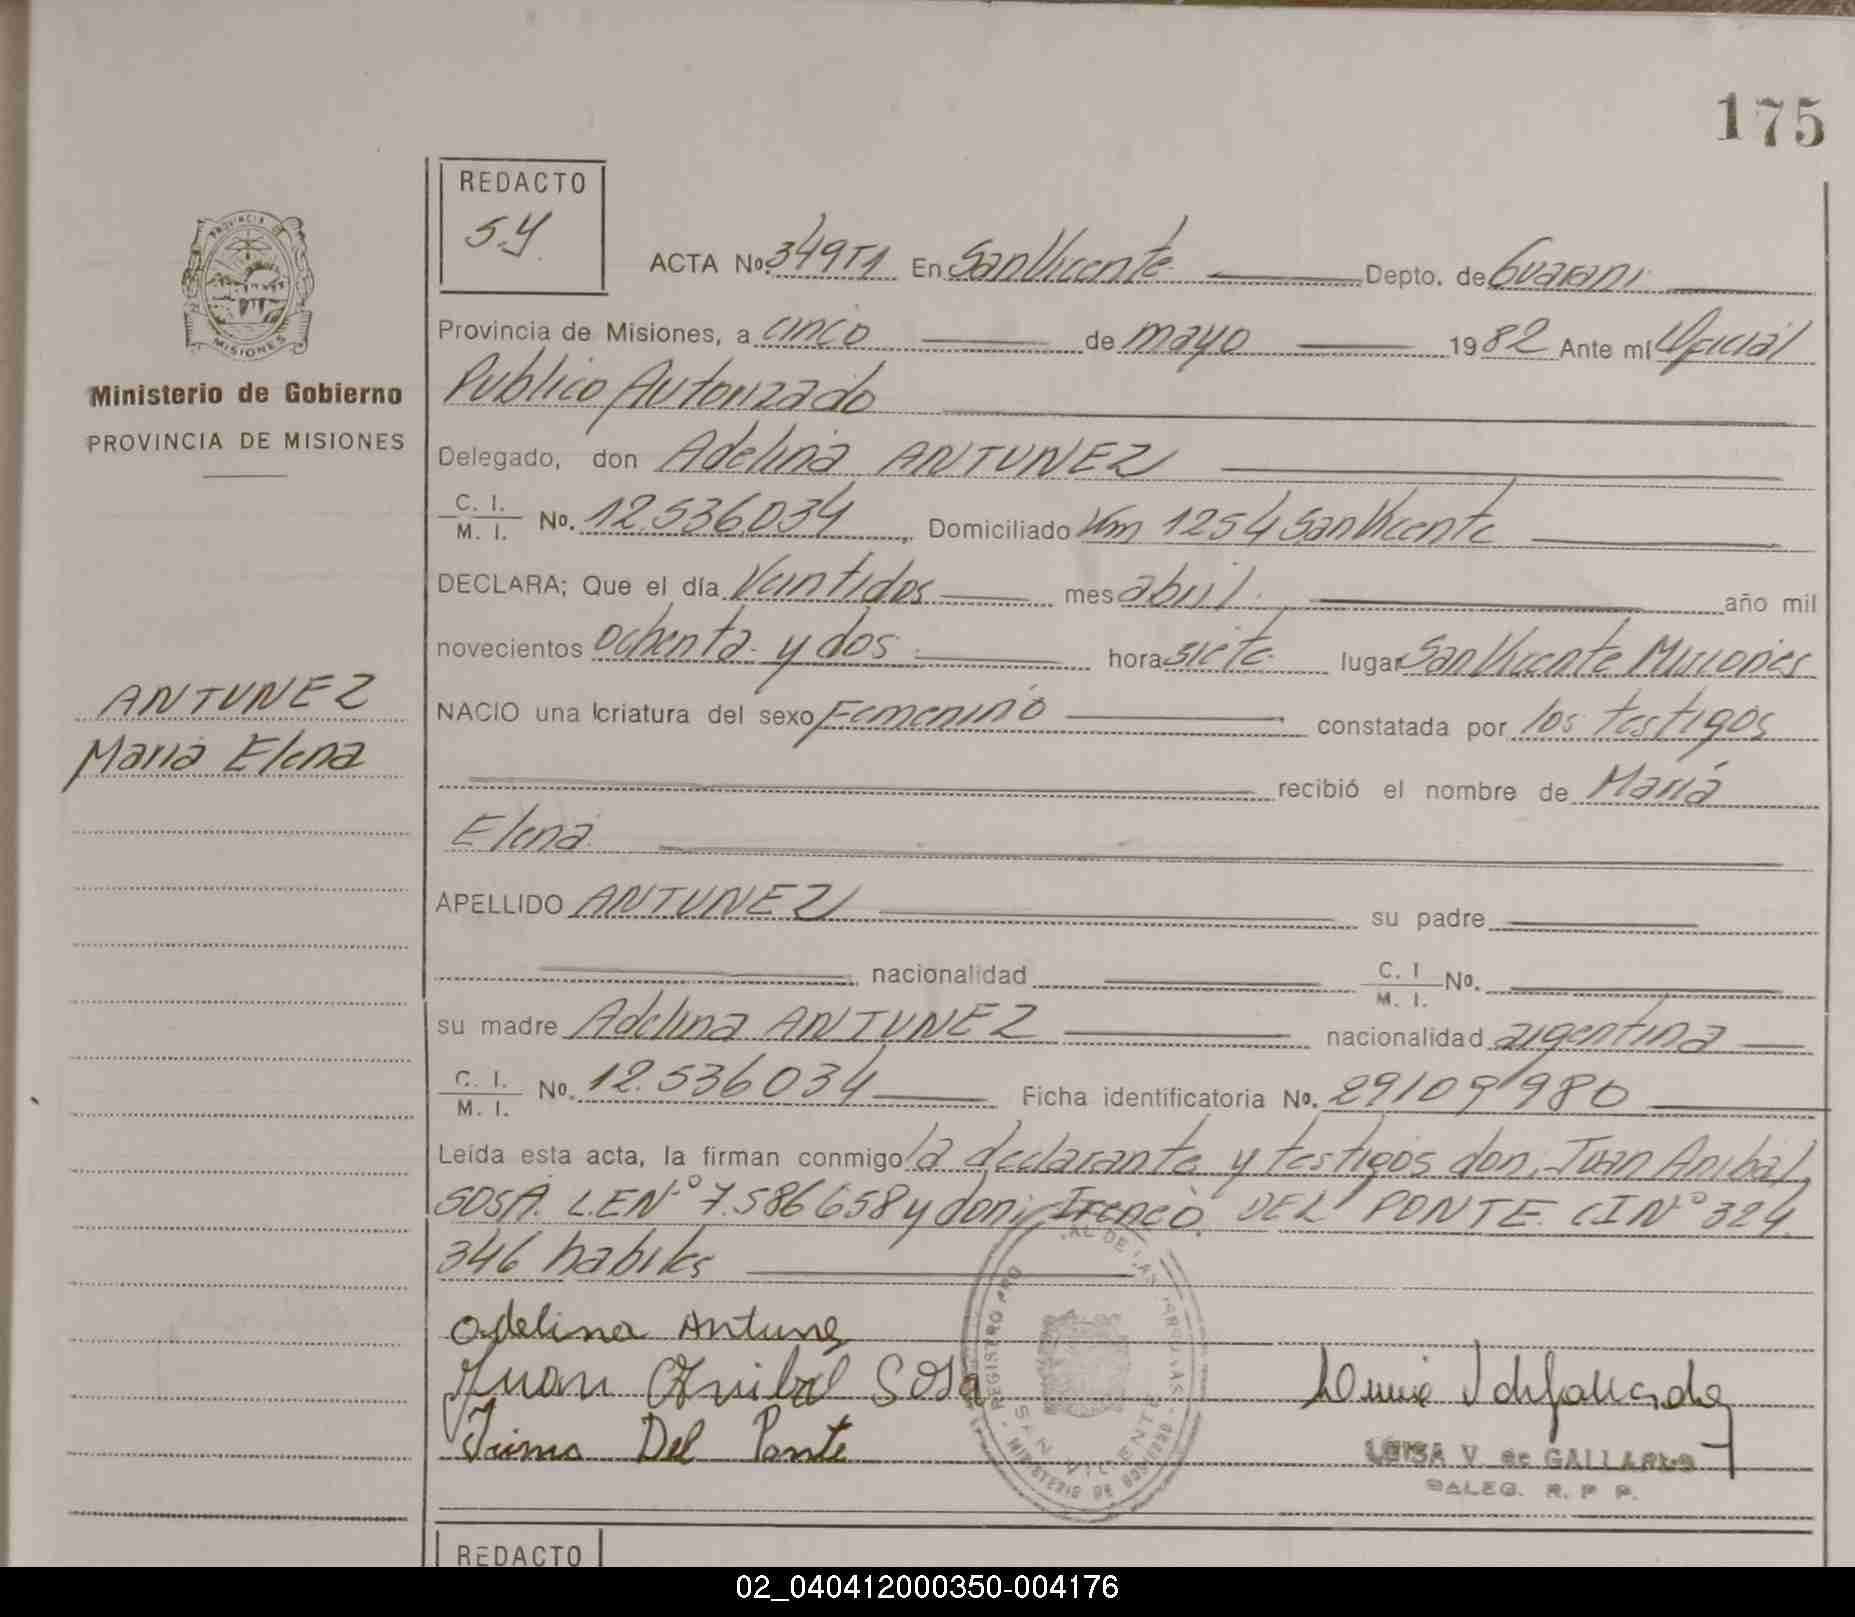 175
REDACTO
S.Y.
PROVINCIA DE
MISIONES
Ministerio de Gobierno
PROVINCIA DE MISIONES
ANTUNEZ
Maria Elena
ACTA No. 349T1 En San Vicente Depto. de Guarani
Provincia de Misiones, a cinco de mayo 1982 Ante mí Oficial
Publico Autorizado
Delegado, don Adelina ANTUNEZ
C. I. M. I. No. 12.536.034, Domiciliado Km 1254 San Vicente
DECLARA; Que el día Veintidos mes abril año mil
novecientos ochenta y dos hora siete lugar San Vicente Misiones
NACIO una criatura del sexo Femenino constatada por los testigos
recibió el nombre de Maria
Elena
APELLIDO ANTUNEZ su padre
nacionalidad C. I M. I. No.
su madre Adelina ANTUNEZ nacionalidad argentina
C. I. M. I. No. 12.536034 Ficha identificatoria No. 29109980
Leída esta acta, la firman conmigo la declarante y testigos don; Juan Anibal
SOSA. L.E.Nº 7.586658 y don; Ireneo DEL PONTE. CI Nº 324
346 habiles
Adelina Antunez
Juan Anibal Sosa
Del Ponte
REGISTRO PRO AL DE LAS PERSONAS
SAN VICENTE
MINISTERIO DE GOBIERNO
LUISA V. de GALLARDO
DALEG. R. P P.
REDACTO
02_040412000350-004176